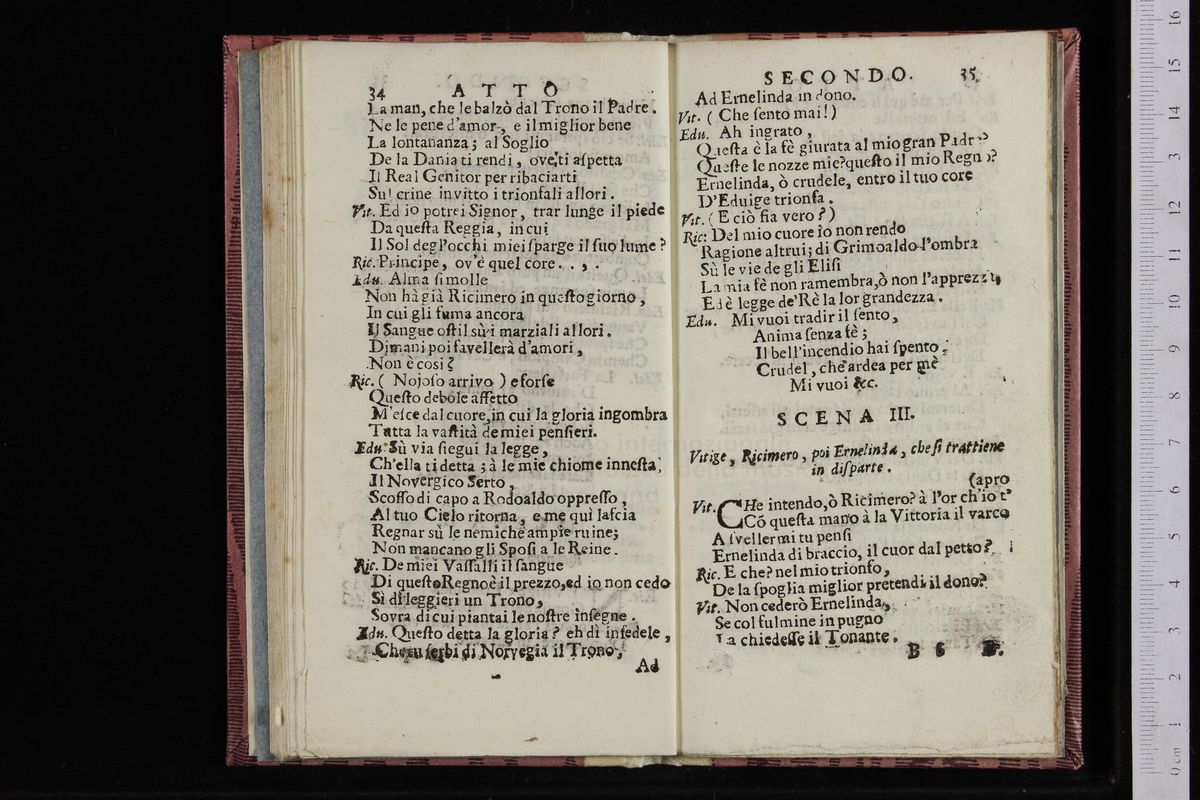 34 ATTO
La man, che le balzò dal Trono il Padre.
Ne le pene d'amor, e il miglior bene
La lontananza; al Soglio
De la Dania ti rendi, ove, ti aſpetta
Il Real Genitor per ribaciarti
Sul crine invitto i trionfali allori.
Vit. Ed io potrei Signor, trar lunge il piede
Da queſta Reggia, in cui
Il Sol degl'occhi miei ſparge il ſuo lume?
Ric. Principe, ov'è quel core . . , .
Edu. Alma ſi molle
Non hà già Ricimero in queſto giorno,
In cui gli fuma ancora
Il Sangue oſtil sù i marziali allori.
Dimani poi favellerà d'amori,
Non è così?
Ric. ( Nojoſo arrivo ) e forſe
Queſto debole affetto
M'eſce dal cuore, in cui la gloria ingombra
Tutta la vaſtità de miei penſieri.
Edu. Sù via ſiegui la legge,
Ch'ella ti detta; à le mie chiome inneſta,
Il Novergico Serto,
Scoſſo di capo a Rodoaldo oppreſſo,
Al tuo Cielo ritorna, e me quì laſcia
Regnar sù le nemiche ampie ruine;
Non mancano gli Spoſi a le Reine.
Ric. De miei Vaſſalli il ſangue
Di queſto Regno è il prezzo, ed io non cedo
Sì di leggieri un Trono,
Sovra di cui piantai le noſtre inſegne.
Edu. Queſto detta la gloria? eh dì infedele,
Che tu ſerbi di Norvegia il Trono,
Ad
SECONDO. 35
Ad Ernelinda in dono.
Vit. ( Che ſento mai!)
Edu. Ah ingrato,
Queſta è la fè giurata al mio gran Padre?
Queſte le nozze mie? queſto il mio Regno?
Ernelinda, ò crudele, entro il tuo core
D'Eduige trionfa.
Vit. ( E ciò fia vero?)
Ric: Del mio cuore io non rendo
Ragione altrui; di Grimoaldo l'ombra
Sù le vie de gli Eliſi
La mia fè non ramembra, ò non l'apprezza,
Ed è legge de'Rè la lor grandezza.
Edu. Mi vuoi tradir il ſento,
Anima ſenza fè;
Il bell'incendio hai ſpento;
Crudel, che ardea per mè
Mi vuoi &c.
SCENA III.
Vitige, Ricimero, poi Ernelinda, che ſi trattiene
in diſparte.
(apro
Vit. CHe intendo, ò Ricimero? à l'or ch'io t'
Cõ queſta mano à la Vittoria il varco
A ſvellermi tu penſi
Ernelinda di braccio, il cuor dal petto?
Ric. E che? nel mio trionfo,
De la ſpoglia miglior pretendi il dono?
Vit. Non cederò Ernelinda,
Se col fulmine in pugno
La chiedeſſe il Tonante.
B 6